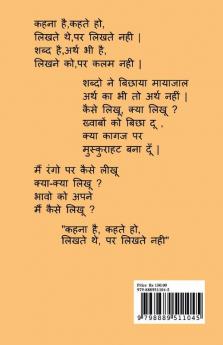 कहना है,कहते हो,
लिखते थे,पर लिखते नही |
शब्द है,अर्थ भी है,
लिखने को,पर कलम नही |
शब्दो ने बिछाया मायाजाल
अर्थ का भी तो अर्थ नही |
कैसे लिखू, क्या लिखू ?
ख्वाबों को बिछा दू ,
क्या कागज पर
मुस्कुराहट बना दूँ |
मैं रंगो पर कैसे लीखू
क्या-क्या लिखू ?
भावो को अपने
मैं कैसे लिखू ?
"कहना है, कहते हो,
लिखते थे, पर लिखते नही"
9 798889 511045